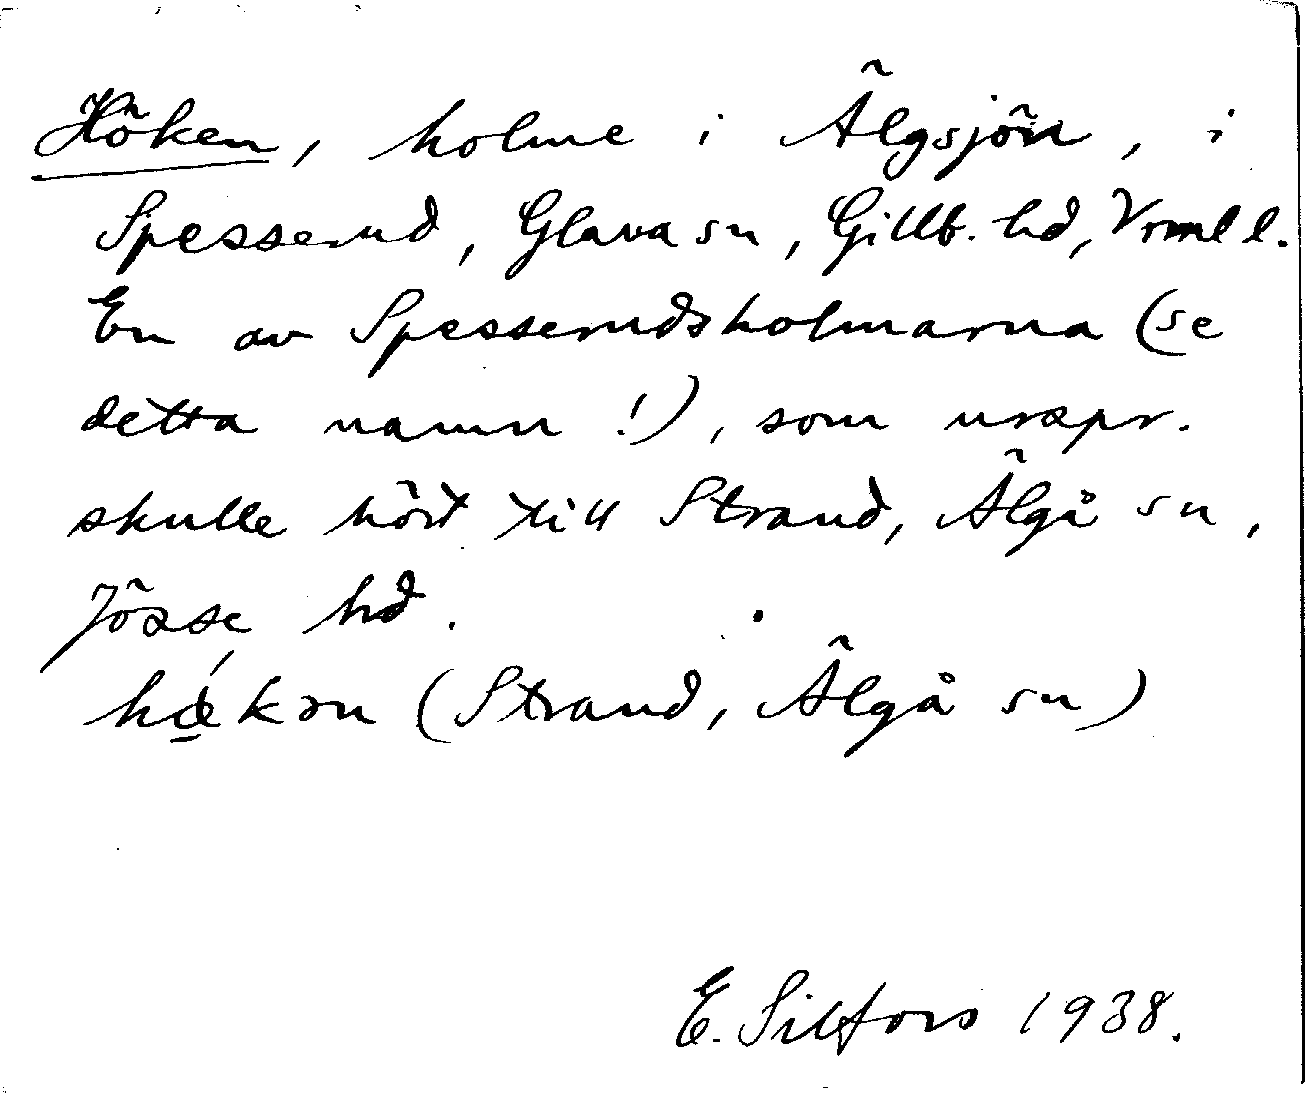 Höken, holme i Älgsjön, i
Spesserud, Glava sn, Gillb. hd, Vrml l.
En av Spesserudsholmarna (se
detta namn!), som urspr.
skulle hört till Strand, Älgå sn,
Jösse hd.
hǿ̱kən (Strand, Älgå sn)
E. Silfors 1938.